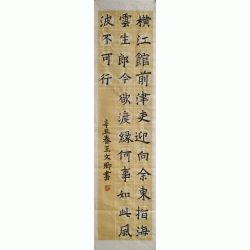 橫江館前津吏迎向余東指海
雲生郎今欲渡緣何事如此風
波不可行
辛丑春王文卿書